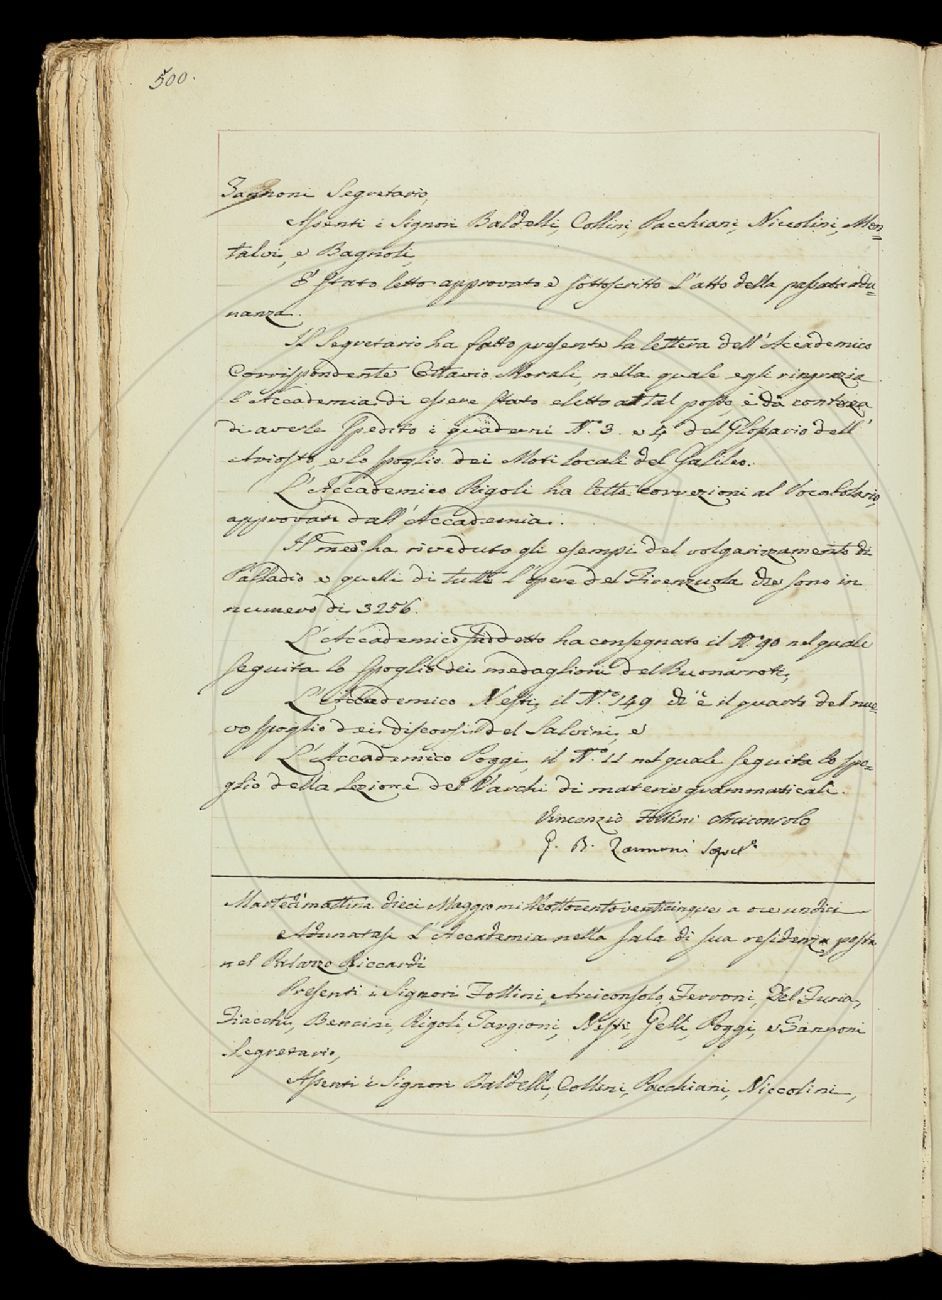 500.
Zannoni Segretario,
Assenti i Signori Baldelli, Collini, Pacchiani, Niccolini, Mon=
talvi, e Bagnoli,
È stato letto approvato e sottoscritto l'atto della passata adu=
nanza.
Il Segretario ha fatto presente la lettera dell'Accademico
Corrispondente Ottavio Morali, nella quale egli ringrazia
l'Accademia di essere stato eletto a tal posto e dà contezza
di avere spedito i quaderni N.° 3. e 4. del Glossario dell'
Ariosto, e lo spoglio dei Moti locali del Galileo.
L'Accademico Rigoli ha letto correzioni al Vocabolario,
approvate dall'Accademia.
Il med.° ha riveduto gli esempi del volgarizzamento di
Palladio e quelli di tutte l'opere del Firenzuola che sono in
numero di 3256.
L'Accademico suddetto ha consegnato il N.° 90 nel quale
seguita lo spoglio dei medaglioni del Buonarroti,
L'Accademico Nesti, il N.° 149 ch'è il quarto del nuo=
vo spoglio dei discorsi del Salvini, e
L'Accademico Poggi, il N.° 11 nel quale seguita lo spo=
glio della Lezione del Varchi di materie grammaticali.
Vincenzio Follini Arciconsolo
G. B. Zannoni Segret.°
Martedì mattina dieci Maggio milleottocentoventicinque a ore undici
Adunatasi l'Accademia nella sala di sua residenza posta
nel Palazzo Riccardi
Presenti i Signori Follini, Arciconsolo, Ferroni, Del Furia,
Fiacchi, Bencini, Rigoli, Targioni, Nesti, Gelli, Poggi, e Zannoni
Segretario,
Assenti i Signori Baldelli, Collini, Pacchiani, Niccolini,